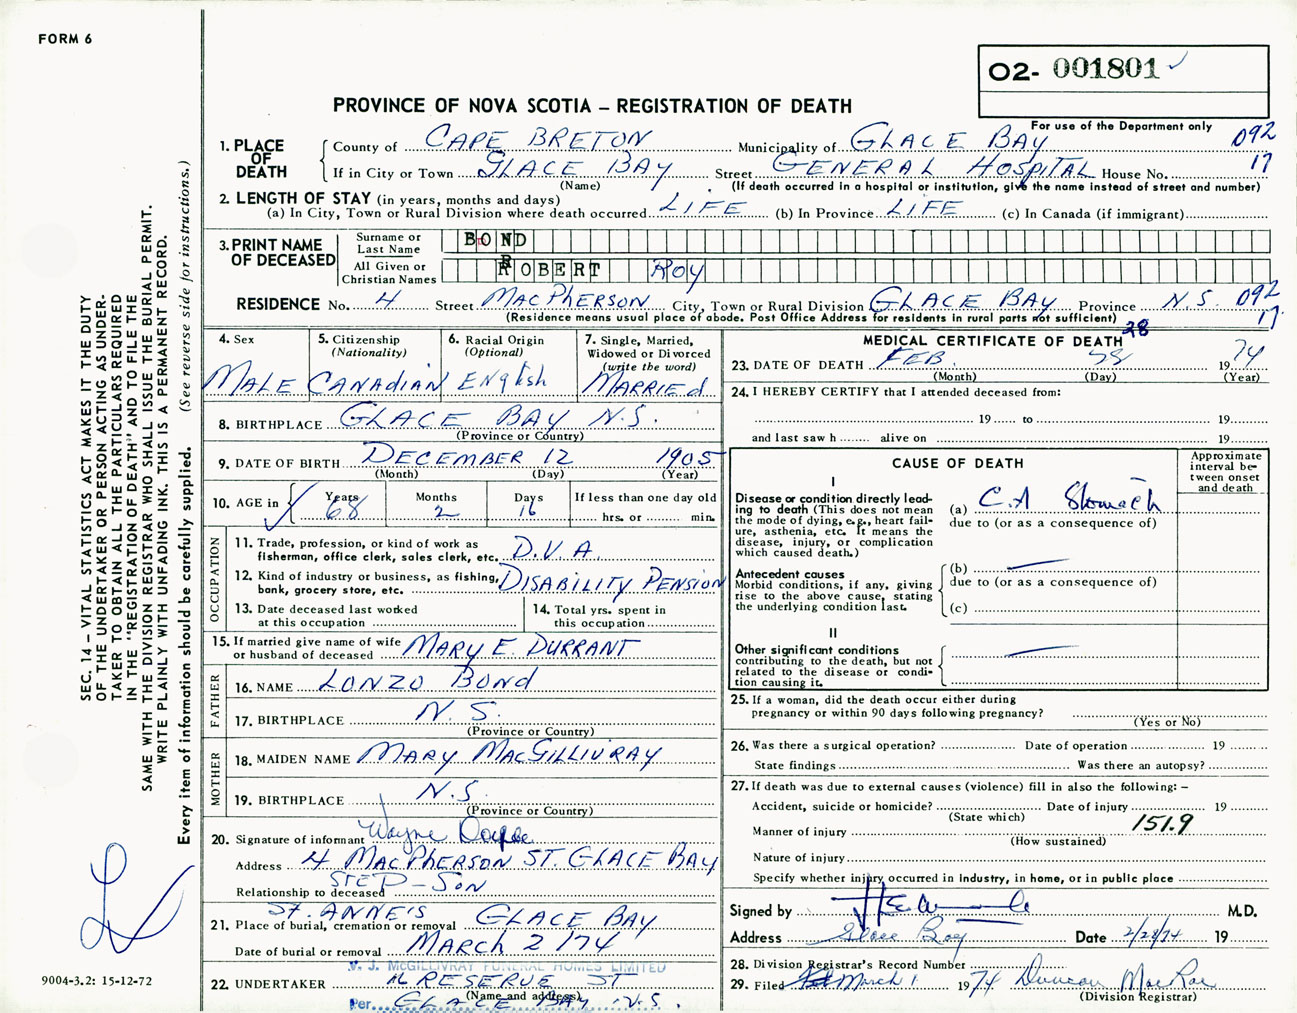 FORM 6
O2- 001801
PROVINCE OF NOVA SCOTIA – REGISTRATION OF DEATH
For use of the Department only
1. PLACE OF DEATH
County of CAPE BRETON Municipality of GLACE BAY 092
If in City or Town GLACE BAY Street GENERAL HOSPITAL House No. 17
(Name) (If death occurred in a hospital or institution, give the name instead of street and number)
2. LENGTH OF STAY (in years, months and days)
(a) In City, Town or Rural Division where death occurred LIFE (b) In Province LIFE (c) In Canada (if immigrant)
3. PRINT NAME OF DECEASED
Surname or Last Name BOND
All Given or Christian Names ROBERT ROY
RESIDENCE No. 4 Street MACPHERSON City, Town or Rural Division GLACE BAY Province N.S. 092
(Residence means usual place of abode. Post Office Address for residents in rural parts not sufficient) 17
4. Sex
MALE
5. Citizenship
(Nationality)
CANADIAN
6. Racial Origin
(Optional)
ENGlish
7. Single, Married,
Widowed or Divorced
(write the word)
MARRIEd
8. BIRTHPLACE GLACE BAY N.S.
(Province or Country)
9. DATE OF BIRTH DECEMBER 12 1905
(Month) (Day) (Year)
10. AGE in
Years Months Days If less than one day old
68 2 16 hrs. or min.
OCCUPATION
11. Trade, profession, or kind of work as
fisherman, office clerk, sales clerk, etc. D.V.A
12. Kind of industry or business, as fishing,
bank, grocery store, etc. DISABILITY PENSION
13. Date deceased last worked
at this occupation
14. Total yrs. spent in
this occupation
15. If married give name of wife
or husband of deceased MARY E. DURRANT
FATHER
16. NAME LONZO BOND
17. BIRTHPLACE N.S.
(Province or Country)
MOTHER
18. MAIDEN NAME MARY MACGILLIVRAY
19. BIRTHPLACE N.S.
(Province or Country)
20. Signature of informant Wayne
Address 4 MACPHERSON ST. GLACE BAY
Relationship to deceased STEP-SON
21. Place of burial, cremation or removal ST. ANNE'S GLACE BAY
Date of burial or removal MARCH 2/74
V. J. McGILLIVRAY FUNERAL HOMES LIMITED
22. UNDERTAKER RESERVE ST
(Name and address)
Per GLACE BAY N.S.
MEDICAL CERTIFICATE OF DEATH 28
23. DATE OF DEATH FEB. 28 1974
(Month) (Day) (Year)
24. I HEREBY CERTIFY that I attended deceased from:
19 to 19
and last saw h alive on 19
CAUSE OF DEATH
Approximate interval between onset and death
I
Disease or condition directly leading to death (This does not mean the mode of dying, e.g., heart failure, asthenia, etc. It means the disease, injury, or complication which caused death.)
(a) C.A Stomach
due to (or as a consequence of)
Antecedent causes
Morbid conditions, if any, giving rise to the above cause, stating the underlying condition last.
(b)
due to (or as a consequence of)
(c)
II
Other significant conditions
contributing to the death, but not related to the disease or condition causing it.
25. If a woman, did the death occur either during
pregnancy or within 90 days following pregnancy?
(Yes or No)
26. Was there a surgical operation? Date of operation 19
State findings Was there an autopsy?
27. If death was due to external causes (violence) fill in also the following: –
Accident, suicide or homicide? Date of injury 19
(State which)
151.9
Manner of injury
(How sustained)
Nature of injury
Specify whether injury occurred in industry, in home, or in public place
Signed by M.D.
Address Glace Bay Date 2/28/74 19
28. Division Registrar's Record Number
29. Filed March 1 1974 Duncan MacRae
(Division Registrar)
SEC. 14 – VITAL STATISTICS ACT MAKES IT THE DUTY
OF THE UNDERTAKER OR PERSON ACTING AS UNDER-
TAKER TO OBTAIN ALL THE PARTICULARS REQUIRED
IN THE "REGISTRATION OF DEATH" AND TO FILE THE
SAME WITH THE DIVISION REGISTRAR WHO SHALL ISSUE THE BURIAL PERMIT.
WRITE PLAINLY WITH UNFADING INK. THIS IS A PERMANENT RECORD.
Every item of information should be carefully supplied. (See reverse side for instructions.)
9004-3.2: 15-12-72